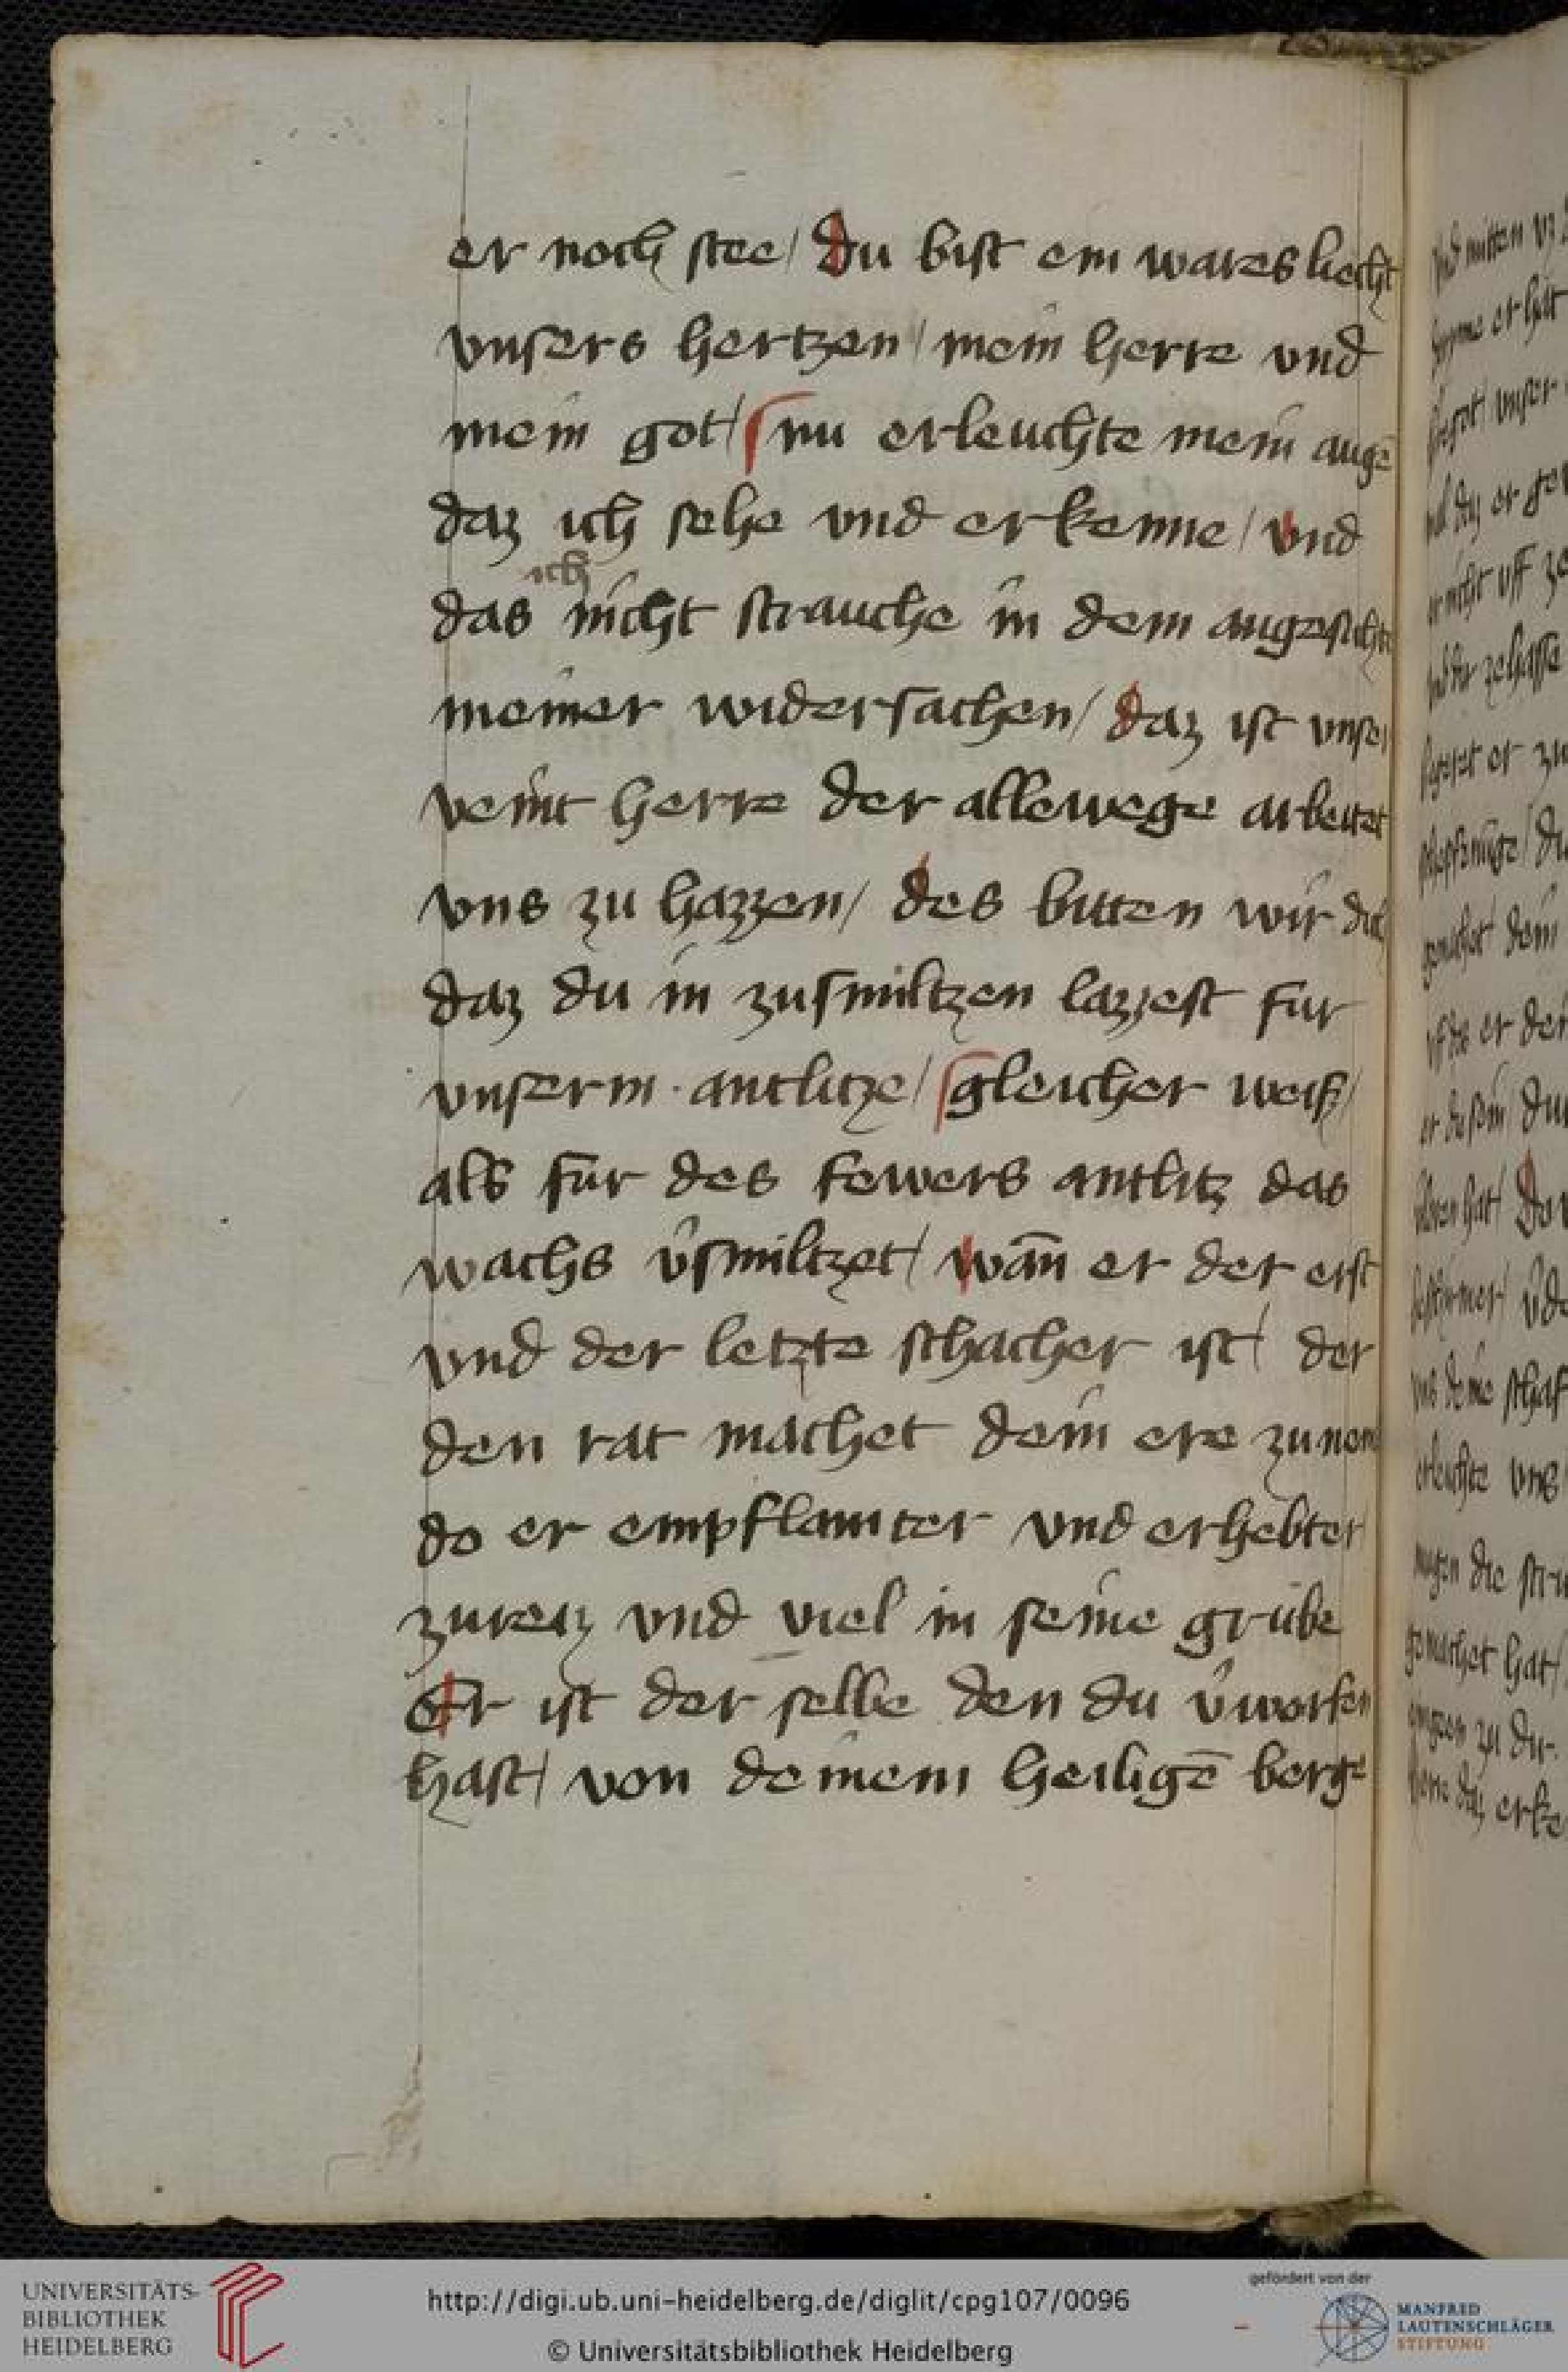 er noch stee / du bist ein wares liecht
vnsers hertzen / mein herre vnd
mein got / nu erleuchte mein augē
daz ich sehe vnd erkenne / vnd
ich
das nicht strauche in dem angesichte
meiner widersachen / daz ist vnser
veint herre der allewege arbeitet
vns zu hazzen / des bitten wir dich
daz du in zusmiltzen lazzest fur
vnserm · antlitze / gleicher weiß /
als fur des fewers antlitz das
wachs v̓smiltzet / wan̄ er der erst
vnd der letzte schacher ist / der
den rat machet dein ere zu nem
do er empflamter vnd erhebter
vnd viel in seine grube
Er ist der selbe den du v̓worfen
hast / von deinem heiligē berge
UNIVERSITÄTS-
BIBLIOTHEK
HEIDELBERG
http://digi.ub.uni-heidelberg.de/diglit/cpg107/0096
© Universitätsbibliothek Heidelberg
gefördert von der
MANFRED
LAUTENSCHLÄGER
STIFTUNG